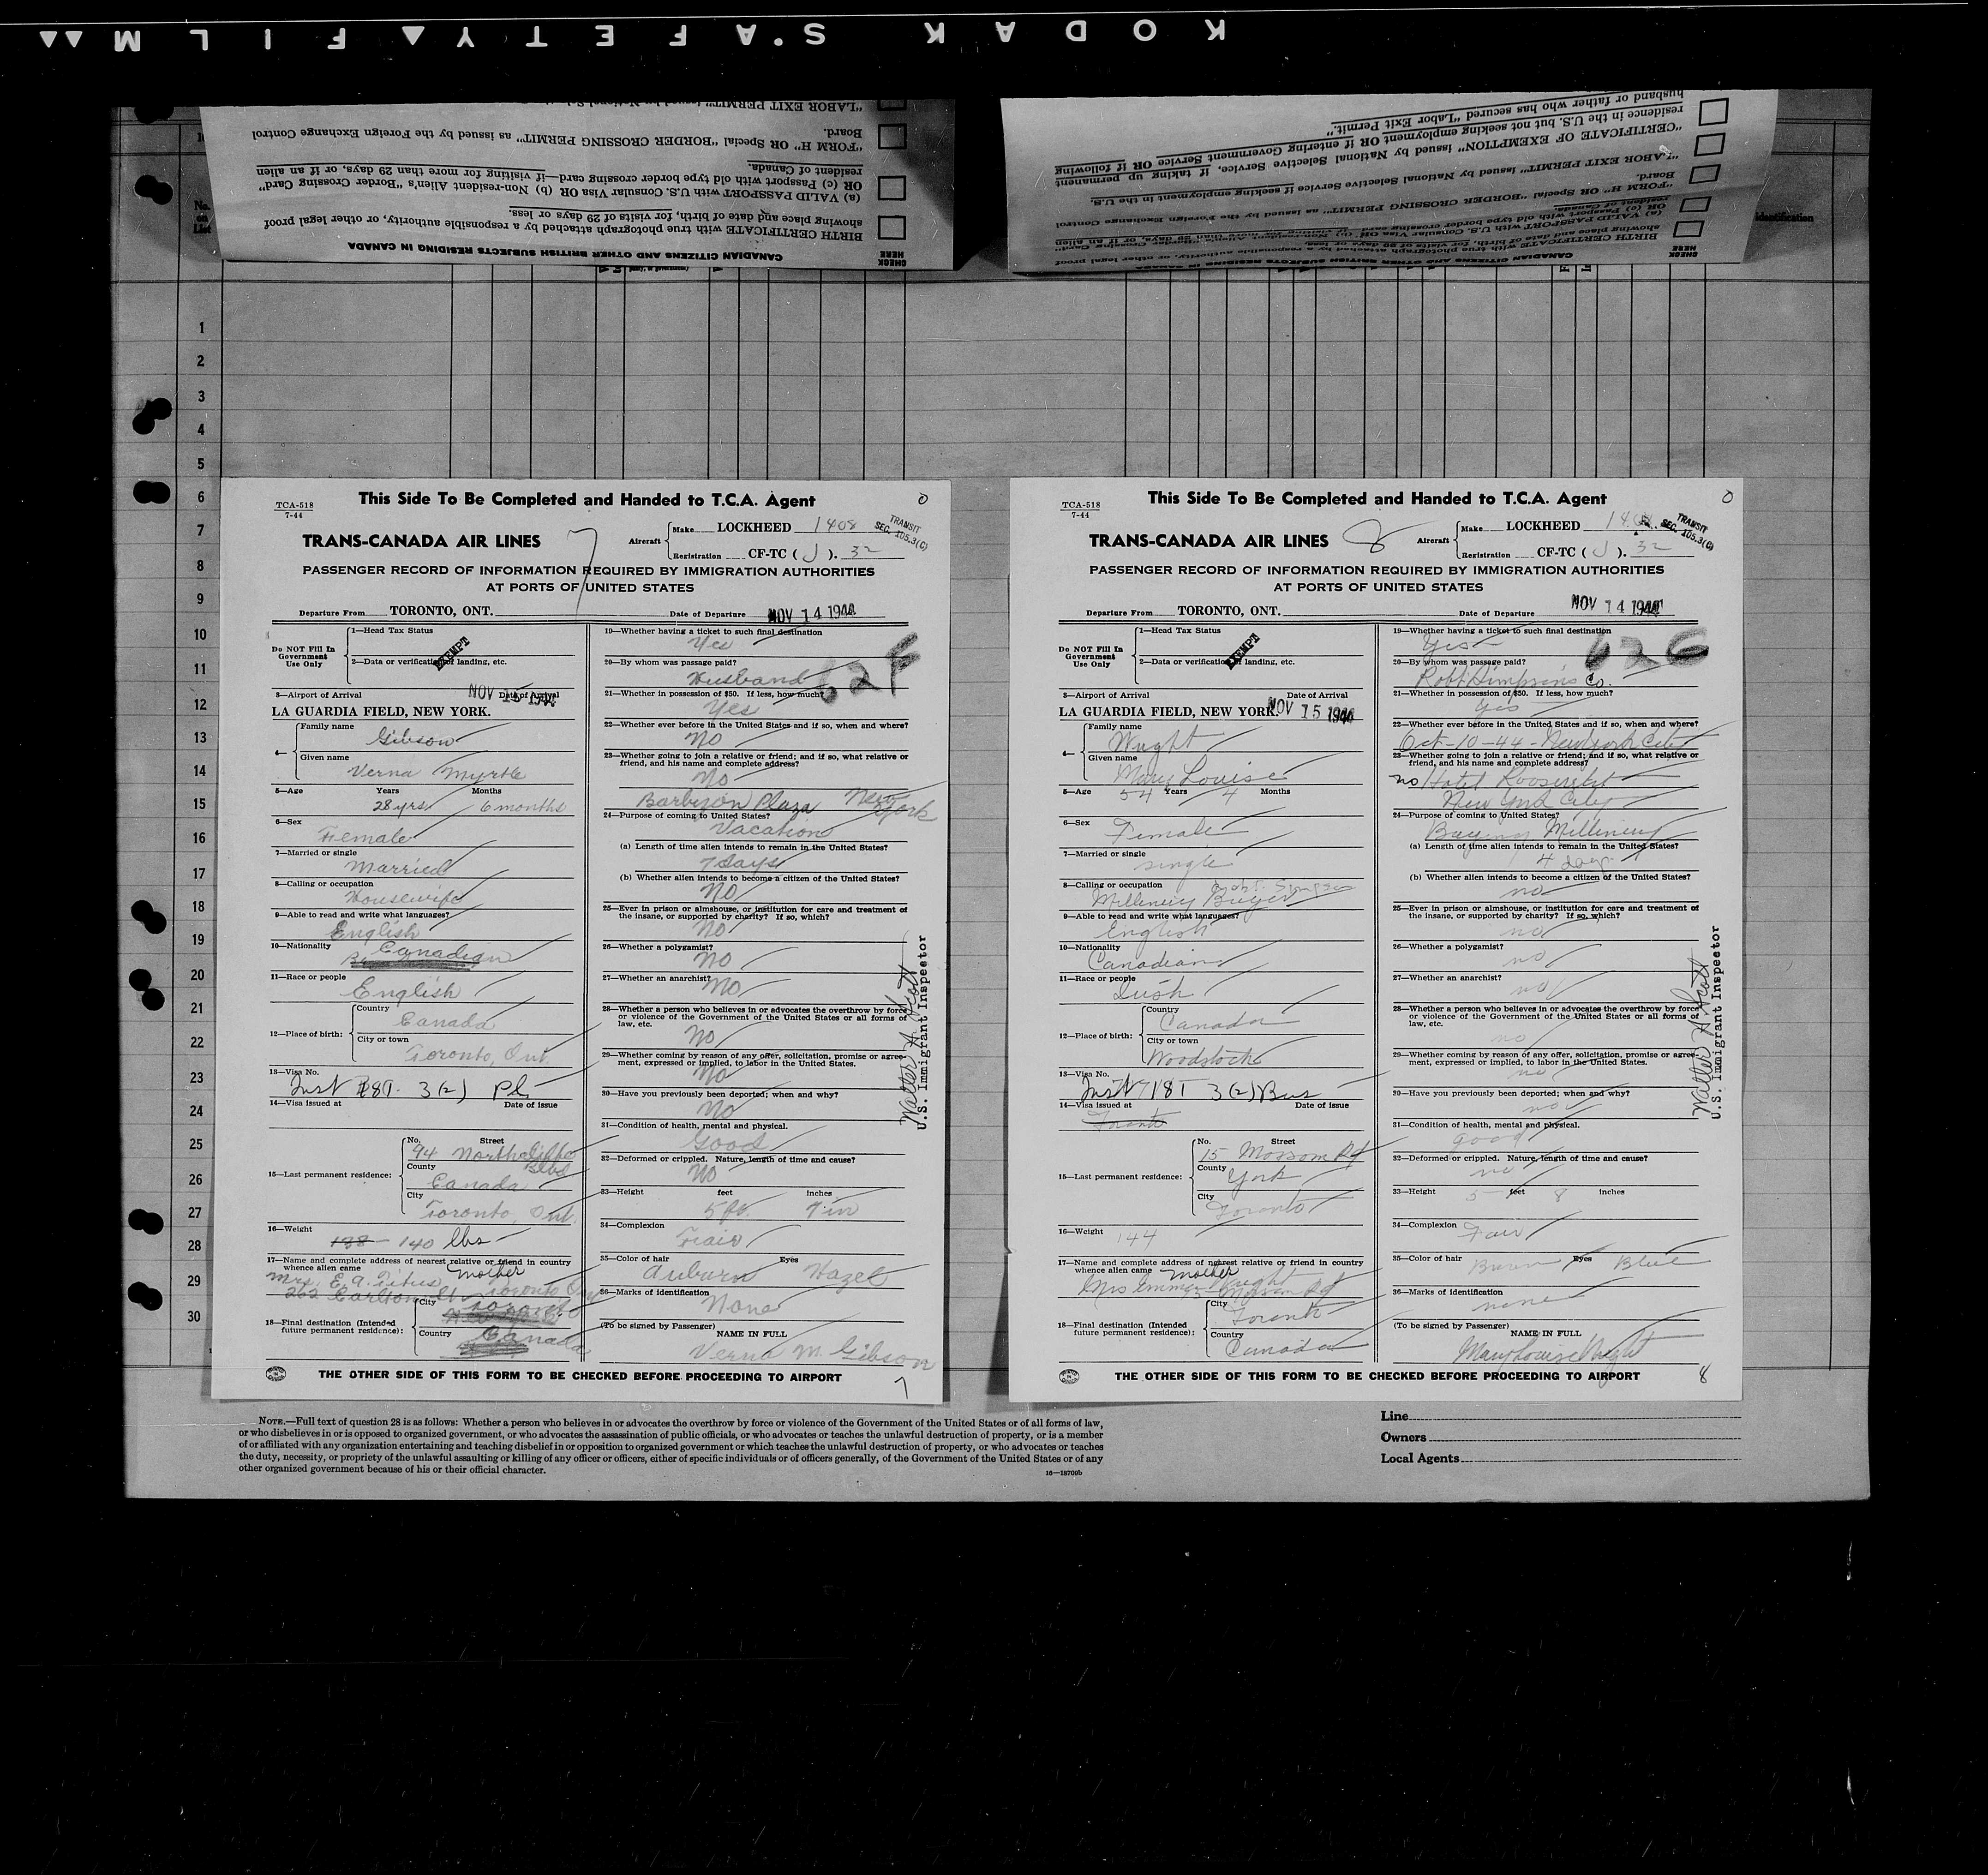 KODAK S'AFETY FILM
"LABOR EXIT PERMIT" issued by National
"FORM H" OR Special "BORDER CROSSING PERMIT" as issued by the Foreign Exchange Control
Board.
(a) VALID PASSPORT with U.S. Consular Visa OR (b) Non-resident Alien's "Border Crossing Card"
OR (c) Passport with old type border crossing card—if visiting for more than 29 days, or if an alien
resident of Canada.
BIRTH CERTIFICATE with true photograph attached by a responsible authority, or other legal proof
showing place and date of birth, for visits of 29 days or less.
CANADIAN CITIZENS AND OTHER BRITISH SUBJECTS RESIDING IN CANADA
CHECK
HERE
husband or father who has secured "Labor Exit Permit."
residence in the U.S. but not seeking employment OR if entering Government Service OR if following
"CERTIFICATE OF EXEMPTION" issued by National Selective Service, if taking up permanent
"LABOR EXIT PERMIT" issued by National Selective Service if seeking employment in the U.S.
Board.
"FORM H" OR Special "BORDER CROSSING PERMIT" as issued by the Foreign Exchange Control
CANADIAN CITIZENS AND OTHER BRITISH SUBJECTS RESIDING IN CANADA
CHECK
HERE
No.
on
List
identification
1
2
3
4
5
6
7
8
9
10
11
12
13
14
15
16
17
18
19
20
21
22
23
24
25
26
27
28
29
30
TCA-518
7-44
This Side To Be Completed and Handed to T.C.A. Agent
0
TRANS-CANADA AIR LINES
7
Aircraft
Make LOCKHEED 1408
Registration CF-TC ( J ). 32
TRANSIT
SEC. 105.3(C)
PASSENGER RECORD OF INFORMATION REQUIRED BY IMMIGRATION AUTHORITIES
AT PORTS OF UNITED STATES
Departure From TORONTO, ONT. Date of Departure NOV 14 1944
Do NOT Fill In
Government
Use Only
1—Head Tax Status
EXEMPT
2—Data or verification of landing, etc.
3—Airport of Arrival Date of Arrival
NOV 15 1944
LA GUARDIA FIELD, NEW YORK.
4—
Family name
Gibson
Given name
Verna Myrtle
5—Age Years Months
28 yrs 6 months
6—Sex
Female
7—Married or single
Married
8—Calling or occupation
Housewife
9—Able to read and write what languages?
English
10—Nationality
Canadian
11—Race or people
English
12—Place of birth:
Country
Canada
City or town
Toronto, Ont.
13—Visa No.
Inst 181. 3(2) Pl.
14—Visa issued at Date of issue
15—Last permanent residence:
No. Street
94 North
Blvd
County
Canada
City
Toronto, Ont.
16—Weight
138 - 140 lbs
17—Name and complete address of nearest relative or friend in country
whence alien came
mother
Mrs. E. A. Titus
262 Carlton St. Toronto Ont
18—Final destination (Intended
future permanent residence):
City
Toronto
Country
Canada
19—Whether having a ticket to such final destination
Yes
62F
20—By whom was passage paid?
Husband
21—Whether in possession of $50. If less, how much?
Yes
22—Whether ever before in the United States and if so, when and where?
No
23—Whether going to join a relative or friend; and if so, what relative or
friend, and his name and complete address?
No
Barbizon Plaza New York
24—Purpose of coming to United States?
Vacation
(a) Length of time alien intends to remain in the United States?
7 days
(b) Whether alien intends to become a citizen of the United States?
No
25—Ever in prison or almshouse, or institution for care and treatment of
the insane, or supported by charity? If so, which?
No
26—Whether a polygamist?
No
27—Whether an anarchist?
No
28—Whether a person who believes in or advocates the overthrow by force
or violence of the Government of the United States or all forms of
law, etc.
No
29—Whether coming by reason of any offer, solicitation, promise or agree-
ment, expressed or implied, to labor in the United States.
No
30—Have you previously been deported; when and why?
No
31—Condition of health, mental and physical.
Good
32—Deformed or crippled. Nature, length of time and cause?
No
33—Height feet inches
5 ft. 7 in
34—Complexion
Fair
35—Color of hair Eyes
Auburn Hazel
36—Marks of identification
None
(To be signed by Passenger)
NAME IN FULL
Verna M. Gibson
Walter A. Scott
U.S. Immigrant Inspector
THE OTHER SIDE OF THIS FORM TO BE CHECKED BEFORE PROCEEDING TO AIRPORT
7
TCA-518
7-44
This Side To Be Completed and Handed to T.C.A. Agent
0
TRANS-CANADA AIR LINES
8
Aircraft
Make LOCKHEED
Registration CF-TC ( J ). 32
TRANSIT
SEC. 105.3(C)
PASSENGER RECORD OF INFORMATION REQUIRED BY IMMIGRATION AUTHORITIES
AT PORTS OF UNITED STATES
Departure From TORONTO, ONT. Date of Departure NOV 14 1944
Do NOT Fill In
Government
Use Only
1—Head Tax Status
EXEMPT
2—Data or verification of landing, etc.
3—Airport of Arrival Date of Arrival
LA GUARDIA FIELD, NEW YORK. NOV 15 1944
4—
Family name
Wright
Given name
Mary Louise
5—Age 54 Years 4 Months
6—Sex
Female
7—Married or single
single
8—Calling or occupation Robt. Simpson
Millinery Buyer
9—Able to read and write what languages?
English
10—Nationality
Canadian
11—Race or people
Irish
12—Place of birth:
Country
Canada
City or town
Woodstock
13—Visa No.
Inst 7/181 3(2) Bus
14—Visa issued at Date of issue
Toronto
15—Last permanent residence:
No. Street
15 Mossom Rd
County
York
City
Toronto
16—Weight
144
17—Name and complete address of nearest relative or friend in country
whence alien came
mother
Mrs Emma Wright
15 Mossom Rd
18—Final destination (Intended
future permanent residence):
City
Toronto
Country
Canada
19—Whether having a ticket to such final destination
Yes
62G
20—By whom was passage paid?
Robt Simpsons Co.
21—Whether in possession of $50. If less, how much?
Yes
22—Whether ever before in the United States and if so, when and where?
Oct-10-44-New York City
23—Whether going to join a relative or friend; and if so, what relative or
friend, and his name and complete address?
no Hotel Roosevelt
New York City
24—Purpose of coming to United States?
Buying Millinery
(a) Length of time alien intends to remain in the United States?
4 days
(b) Whether alien intends to become a citizen of the United States?
no
25—Ever in prison or almshouse, or institution for care and treatment of
the insane, or supported by charity? If so, which?
no
26—Whether a polygamist?
no
27—Whether an anarchist?
no
28—Whether a person who believes in or advocates the overthrow by force
or violence of the Government of the United States or all forms of
law, etc.
no
29—Whether coming by reason of any offer, solicitation, promise or agree-
ment, expressed or implied, to labor in the United States.
no
30—Have you previously been deported; when and why?
no
31—Condition of health, mental and physical.
good
32—Deformed or crippled. Nature, length of time and cause?
no
33—Height 5 feet 8 inches
34—Complexion Fair
35—Color of hair Brown Eyes Blue
36—Marks of identification
none
(To be signed by Passenger)
NAME IN FULL
Mary Louise Wright
Walter A. Scott
U.S. Immigrant Inspector
THE OTHER SIDE OF THIS FORM TO BE CHECKED BEFORE PROCEEDING TO AIRPORT
8
NOTE.—Full text of question 28 is as follows: Whether a person who believes in or advocates the overthrow by force or violence of the Government of the United States or of all forms of law,
or who disbelieves in or is opposed to organized government, or who advocates the assassination of public officials, or who advocates or teaches the unlawful destruction of property, or is a member
of or affiliated with any organization entertaining and teaching disbelief in or opposition to organized government or which teaches the unlawful destruction of property, or who advocates or teaches
the duty, necessity, or propriety of the unlawful assaulting or killing of any officer or officers, either of specific individuals or of officers generally, of the Government of the United States or of any
other organized government because of his or their official character.
16—18709b
Line
Owners
Local Agents